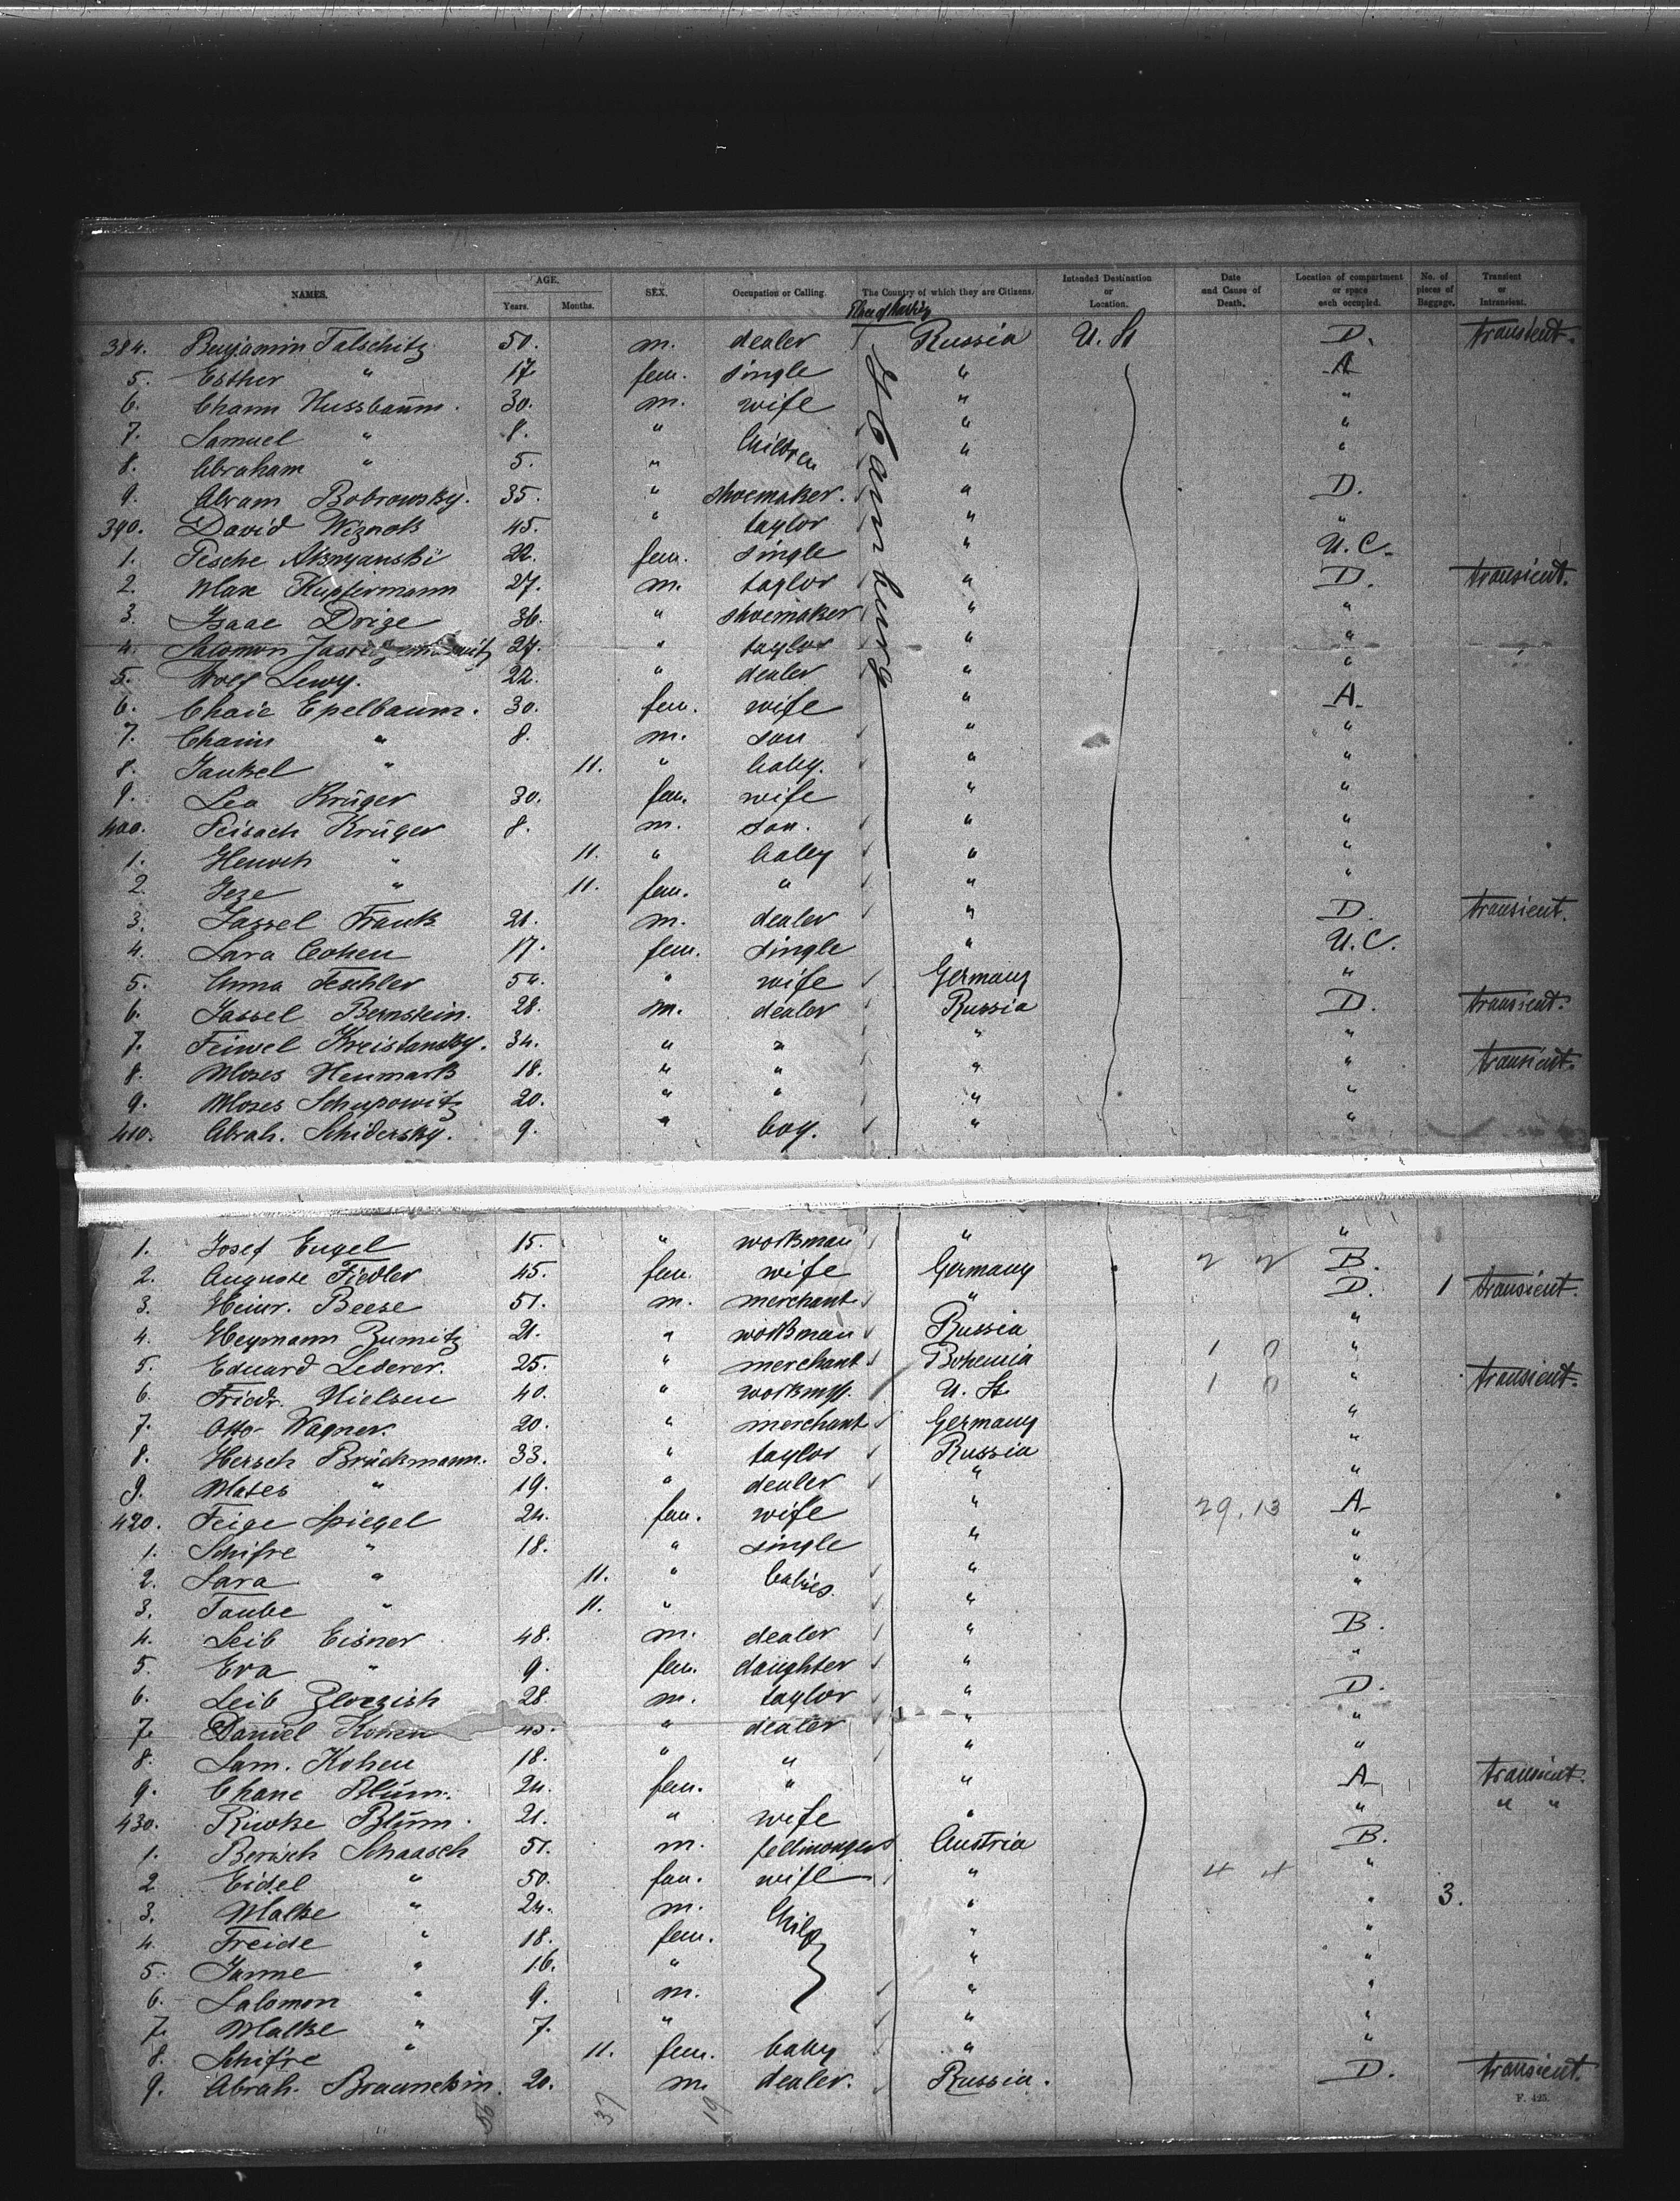 NAMES. AGE. Years. Months. SEX. Occupation or Calling. The Country of which they are Citizens. Intended Destination or Location. Date and Cause of Death. Location of compartment or space each occupied. No. of pieces of Baggage. Transient or Intransient.
Hamburg
384. Benjamin Talschitz 50. m. dealer Russia U. St D. transient.
5. Esther " 17 fem. single " A
6. Chann Nussbaum. 30. m. wife " "
7. Samuel " 8. " Children " "
8. Abraham " 5. " "
9. Abram Bobrowsky. 35. " shoemaker. " D.
390. David Wiznok 45. " taylor " "
1. Pesche 22. fem. single " U.C.
2. Max Kupfermann 27. m. taylor " D. transient.
3. Isaac Drige 36. " shoemaker " "
4. Salomon 27. " taylor " "
5. Wolf Lewy. 22. " dealer " "
6. Chaie Epelbaum. 30. fem. wife " A
7. Chaim " 8. m. son " "
8. Jankel " 11. " baby. " "
9. Lea Krüger 30. fem. wife " "
400. Feisach Krüger 8. m. son. " "
1. Henoch " 11. " baby " "
2. Jeze " 11. fem. " " "
3. Jassel Frank 21. m. dealer " D. transient.
4. Sara Cohen 17. fem. single " U.C.
5. Anna Feschler 54. " wife Germany "
6. Jassel Bernstein. 28. m. dealer Russia D. transient.
7. Feiwel Kreistansky. 34. " " " "
8. Moses Heumark 18. " " " " transient.
9. Moses Schupowitz 20. " " " "
410. Abrah. Schidersky. 9. " boy. " "
1. Josef Engel 15. " workman " "
2. Auguste Fiedler 45. fem. wife Germany B.
3. Heinr. Beese 51. m. merchant " D. 1 transient.
4. Heymann Zumitz 21. " workman Russia "
5. Eduard Lederer. 25. " merchant Bohemia 1 0 "
6. Friedr. Nielsen 40. " U. St. 1 0 " transient.
7. Otto Wagner. 20. " merchant Germany "
8. Hersch Brückmann. 33. " taylor Russia "
9. Moses " 19. " dealer " "
420. Feige Spiegel 24. fem. wife " 29.13 A
1. Schifre " 18. " single " "
2. Sara " 11. " babies. " "
3. Taube " 11. " "
4. Leib Eisner 48. m. dealer " B.
5. Eva " 9. fem. daughter " "
6. Leib 28. m. taylor " D.
7. Daniel Kohen " dealer " "
8. Sam. Kohen 18. " " " "
9. Chane Blum. 24. fem. " " A transient.
430. Riwke Blum. 21. " wife " " " "
1. Berisch Schaasch 51. m. fellmonger Austria B.
2. Eidel " 50. fem. wife " 4 4 "
3. Malke " 24. m. Child " " 3.
4. Freide " 18. fem. " "
5. Janne " 16. " " "
6. Salomon " 9. m. " "
7. Malke " 7. " " "
8. Schifre " 11. fem. baby " "
9. Abrah. Braunckin. 20. m. dealer. Russia. D. transient.
37 19
F. 425.